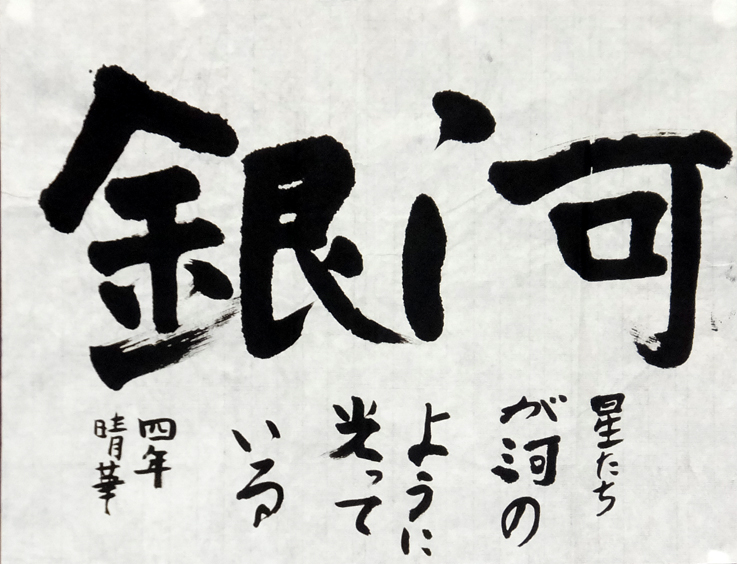 銀河
星たち
が河の
ように
光って
いる
四年
晴華